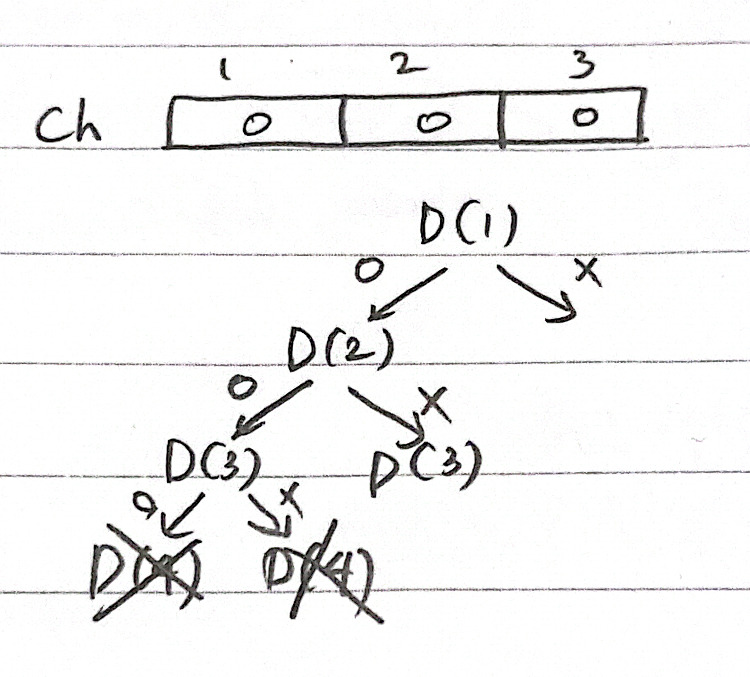 1 2 3
Ch 0 0 0
D(1)
0 X
D(2)
0 X
D(3) D(3)
0 X
D(4) D(4)